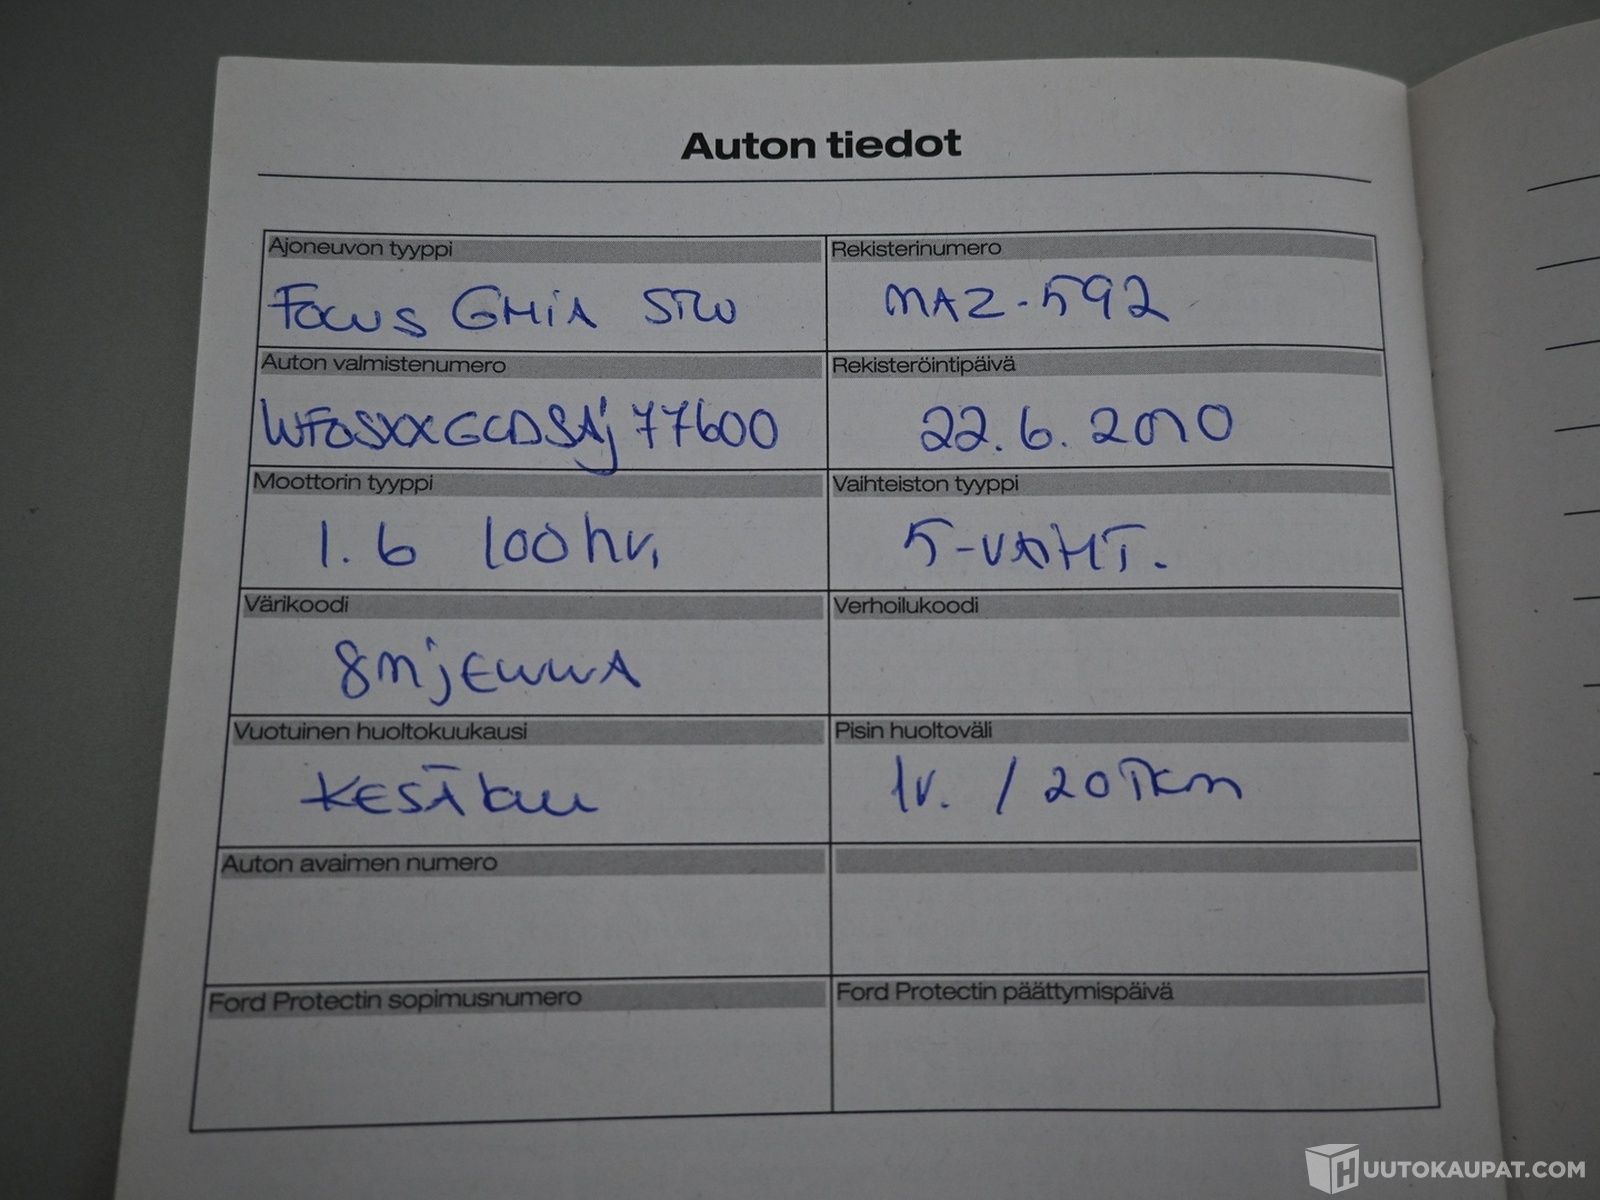 Auton tiedot
Ajoneuvon tyyppi Rekisterinumero
FOCUS GHIA STW MAZ-592
Auton valmistenumero Rekisteröintipäivä
WF0SXXGCDSAJ77600 22.6.2010
Moottorin tyyppi Vaihteiston tyyppi
1.6 100hv. 5-VAIHT.
Värikoodi Verhoilukoodi
Vuotuinen huoltokuukausi Pisin huoltoväli
KESÄkuu 1v. / 20Tkm
Auton avaimen numero
Ford Protectin sopimusnumero Ford Protectin päättymispäivä
HUUTOKAUPAT.COM